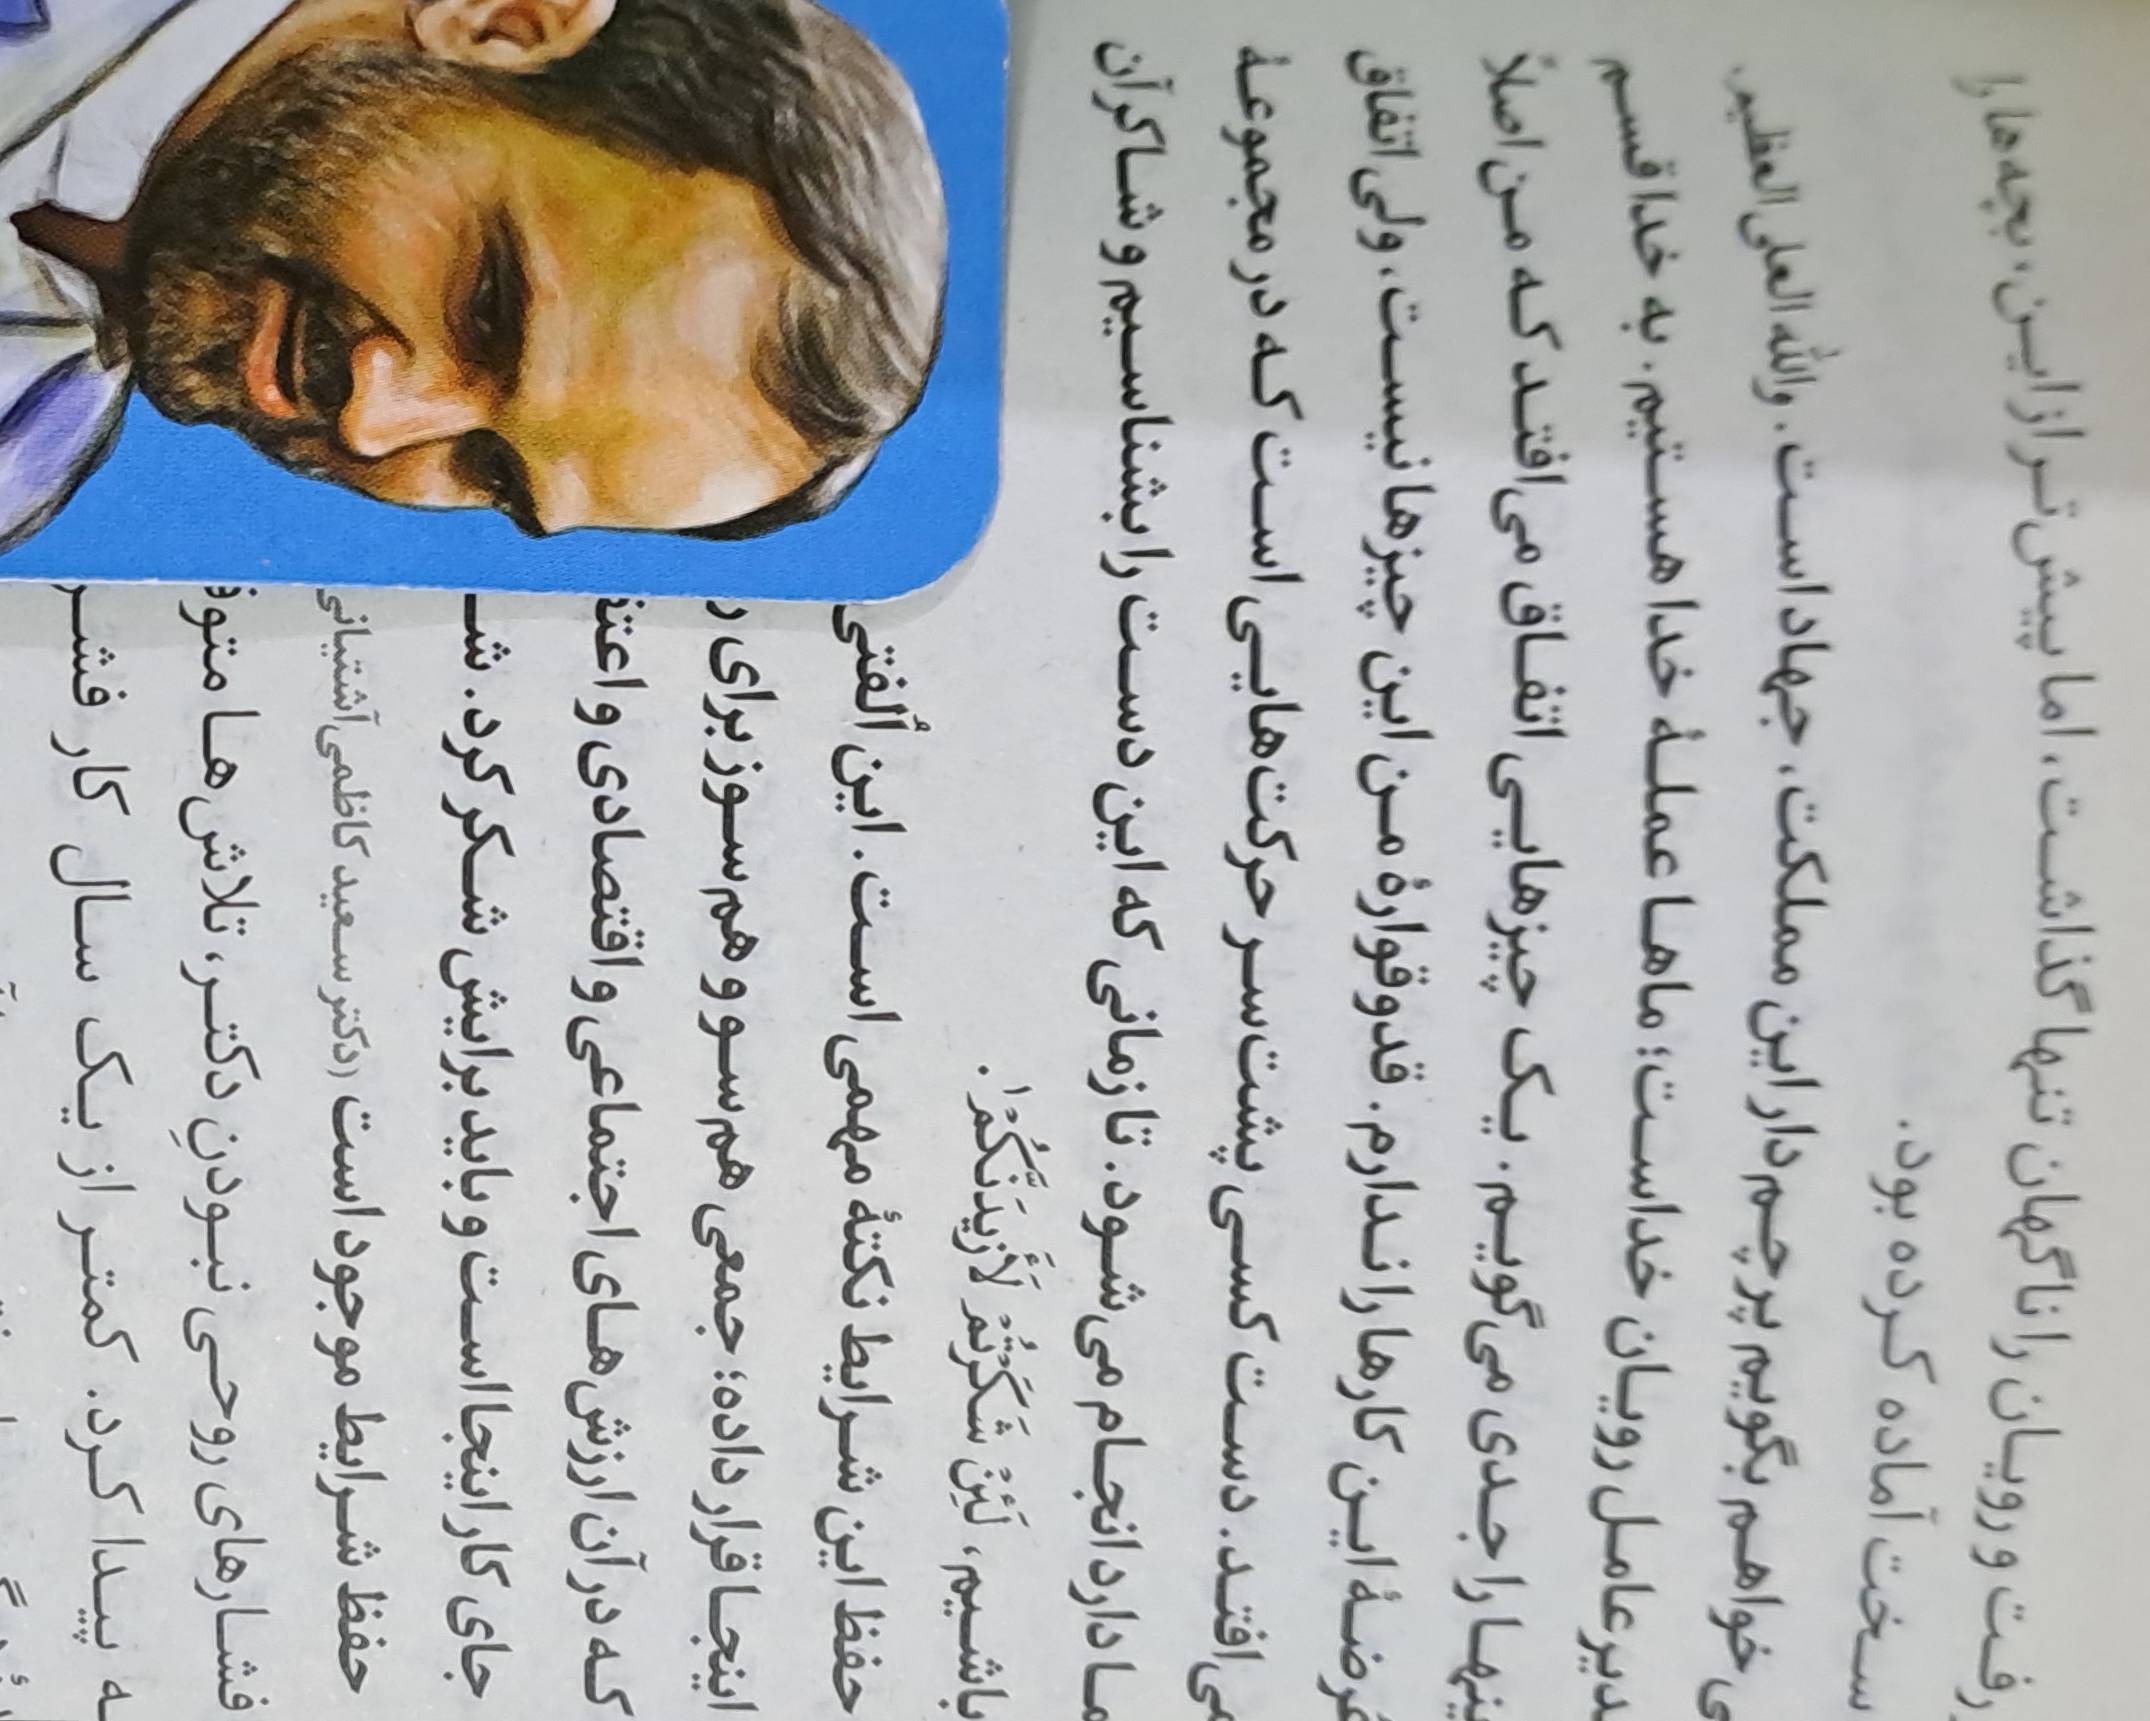 رفت و رویان را ناگهان تنها گذاشت، اما پیش‌تر از این، بچه‌ها را
سخت آماده کرده بود.
می‌خواهم بگویم پرچم‌دار این مملکت، جهاد است. والله العلی العظیم،
مدیرعامل رویان خداست؛ ماها عملهٔ خدا هستیم. به خدا قسم
اینها را جدی می‌گویم. یک چیزهایی اتفاق می‌افتد که من اصلاً
عرضهٔ این کارها را ندارم. قدوقوارهٔ من این چیزها نیست، ولی اتفاق
می‌افتد. دست کسی پشت‌سر حرکت‌هایی است که در مجموعهٔ
ما دارد انجام می‌شود. تا زمانی که این دست را بشناسیم و شاکر آن
باشیم، لَئِنْ شَکَرْتُمْ لَأَزِیدَنَّکُمْ۱.
حفظ این شرایط نکتهٔ مهمی است. این أُلفتی
اینجا قرار داده؛ جمعی هم‌سو و هم‌سوز برای
که در آن ارزش‌های اجتماعی و اقتصادی و
جای کار اینجا است و باید برایش شکر کرد.
حفظ شرایط موجود است (دکتر سعید کاظمی‌آشتیانی
فشارهای روحی نبودنِ دکتر، تلاش‌ها
پیدا کرد. کمتر از یک سال کار